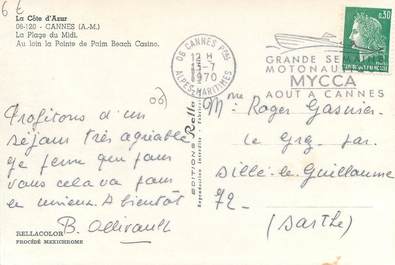 6 €
La Côte d'Azur
06-120 - CANNES (A.-M.)
La Plage du Midi.
Au loin la Pointe de Palm Beach Casino.
06 CANNES Ppal
12 H
13-7
1970
ALPES-MARITIMES
0,30
GRANDE SEM
MOTONAU
MYCCA
AOUT A CANNES
(06)
Profitons d'un
séjour très agréable
je pense que pour
vous cela va pour
le mieux. A bientôt
B. Allirault
EDITIONS Rella
Reproduction Interdite
Mme Roger Gasnier
le Grez par
Sillé-le-Guillaume
72-
(Sarthe)
RELLACOLOR
PROCÉDÉ MEXICHROME